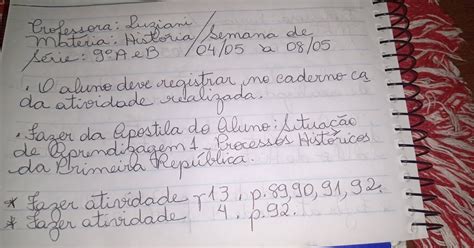 Professora: Lugiani
Matéria: História / Semana de
Série: 9º A e B / 04/05 a 08/05
. O aluno deve registrar no caderno ca
da atividade realizada.
. Fazer da Apostila do Aluno: Situação
de Aprendizagem 1 - Processos Históricos
da Primeira República.
* Fazer atividade 3, p. 89, 90, 91, 92.
* Fazer atividade 4, p. 92.